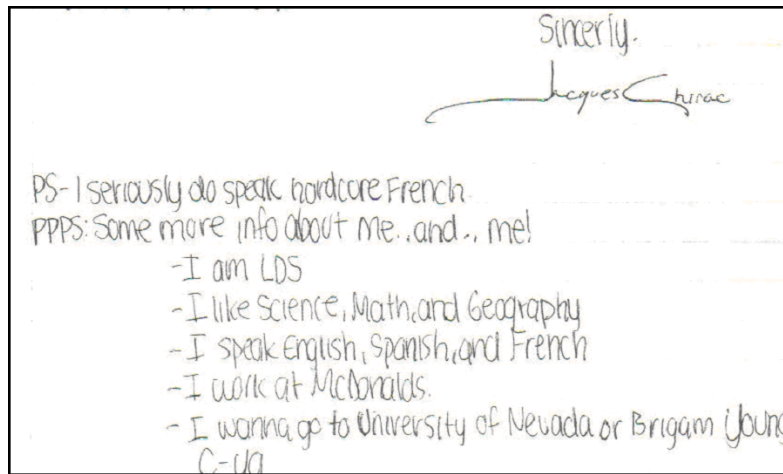 Sincerly.
Jacques Chirac
PS- I seriously do speak hardcore French
PPPS: Some more info about me..and.. me!
-I am LDS
-I like Science, Math, and Geography
-I speak English, Spanish, and French
-I work at McDonalds.
-I wanna go to University of Nevada or Brigam Young
C-ya